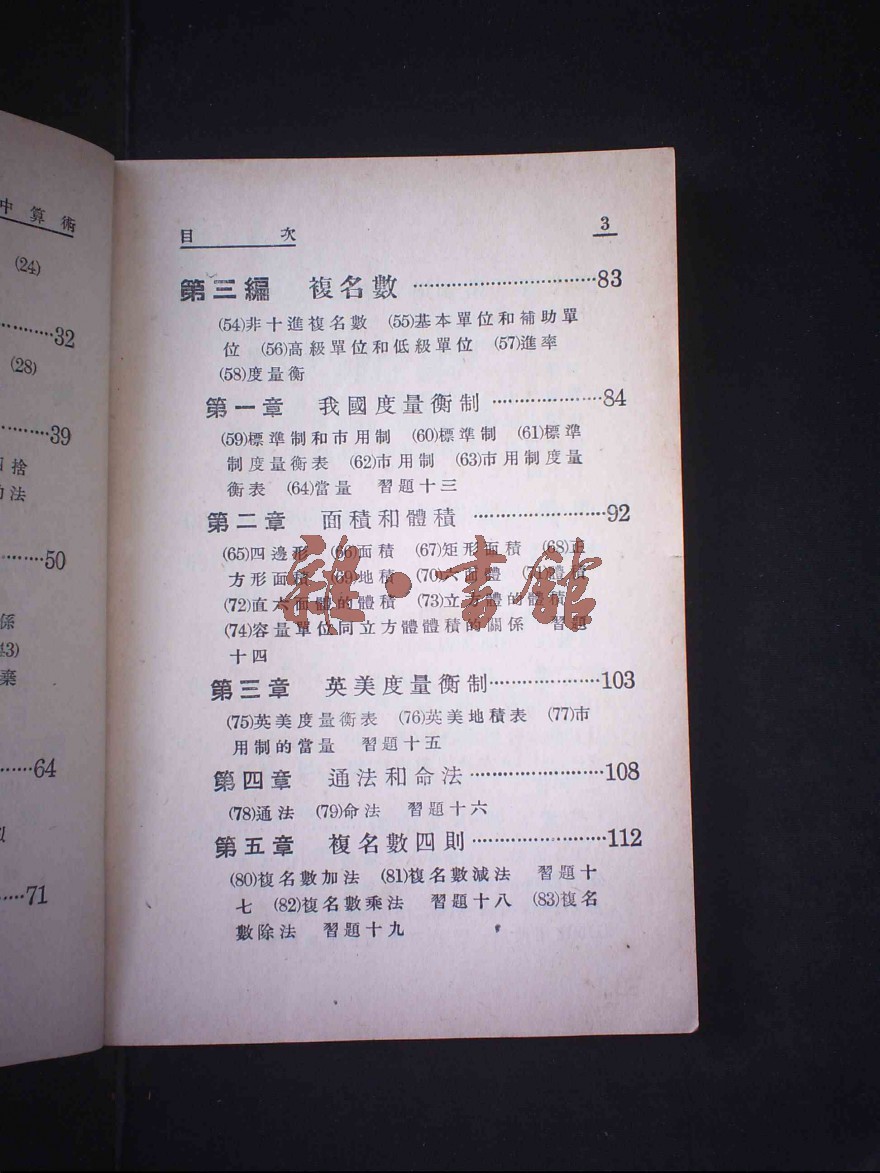 中算術
(24)
32
(28)
39
捨
法
50
係
43)
棄
64
71
目 次 3
第三編 複名數 ……………………………83
(54)非十進複名數 (55)基本單位和補助單
位 (56)高級單位和低級單位 (57)進率
(58)度量衡
第一章 我國度量衡制 ………………84
(59)標準制和市用制 (60)標準制 (61)標準
制度量衡表 (62)市用制 (63)市用制度量
衡表 (64)當量 習題十三
第二章 面積和體積 …………………92
(65)四邊形 (66)面積 (67)矩形面積 (68)正
方形面積 (69)地積 (70)六面體 (71)體積
(72)直六面體的體積 (73)立方體的體積
(74)容量單位同立方體體積的關係 習題
十四
雜·書館
第三章 英美度量衡制………………103
(75)英美度量衡表 (76)英美地積表 (77)市
用制的當量 習題十五
第四章 通法和命法…………………108
(78)通法 (79)命法 習題十六
第五章 複名數四則…………………112
(80)複名數加法 (81)複名數減法 習題十
七 (82)複名數乘法 習題十八 (83)複名
數除法 習題十九